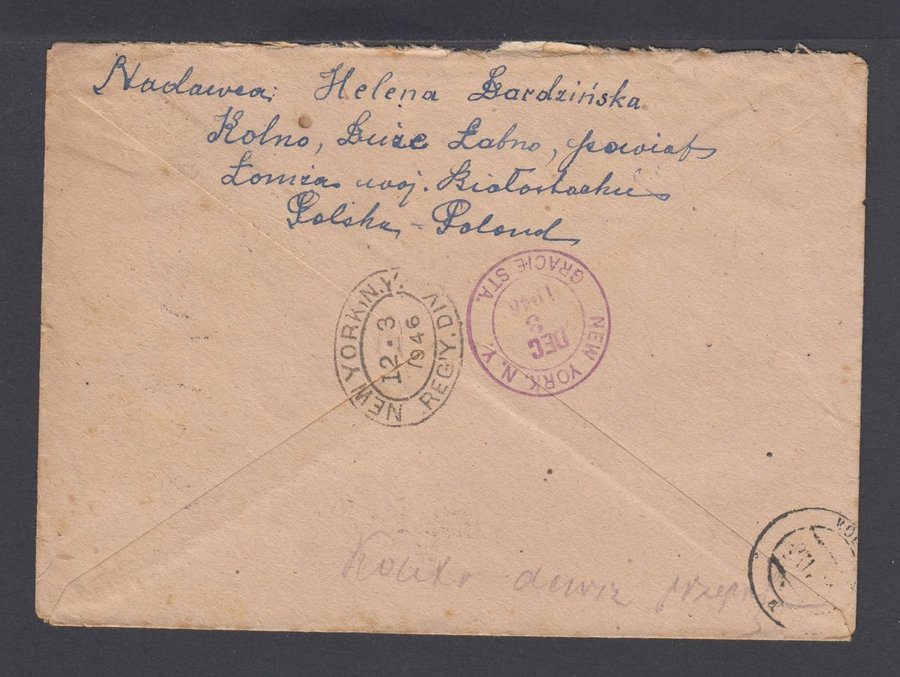 Nadawca: Helena Bardzińska
Kolno, Duże Łabno, powiat
Łomża woj. Białostockie
Polska - Poland
NEW YORK, N.Y. REG'Y. DIV
12·3
1946
NEW YORK, N. Y. GRACIE STA.
DEC
3
1946
KOL
dewiz